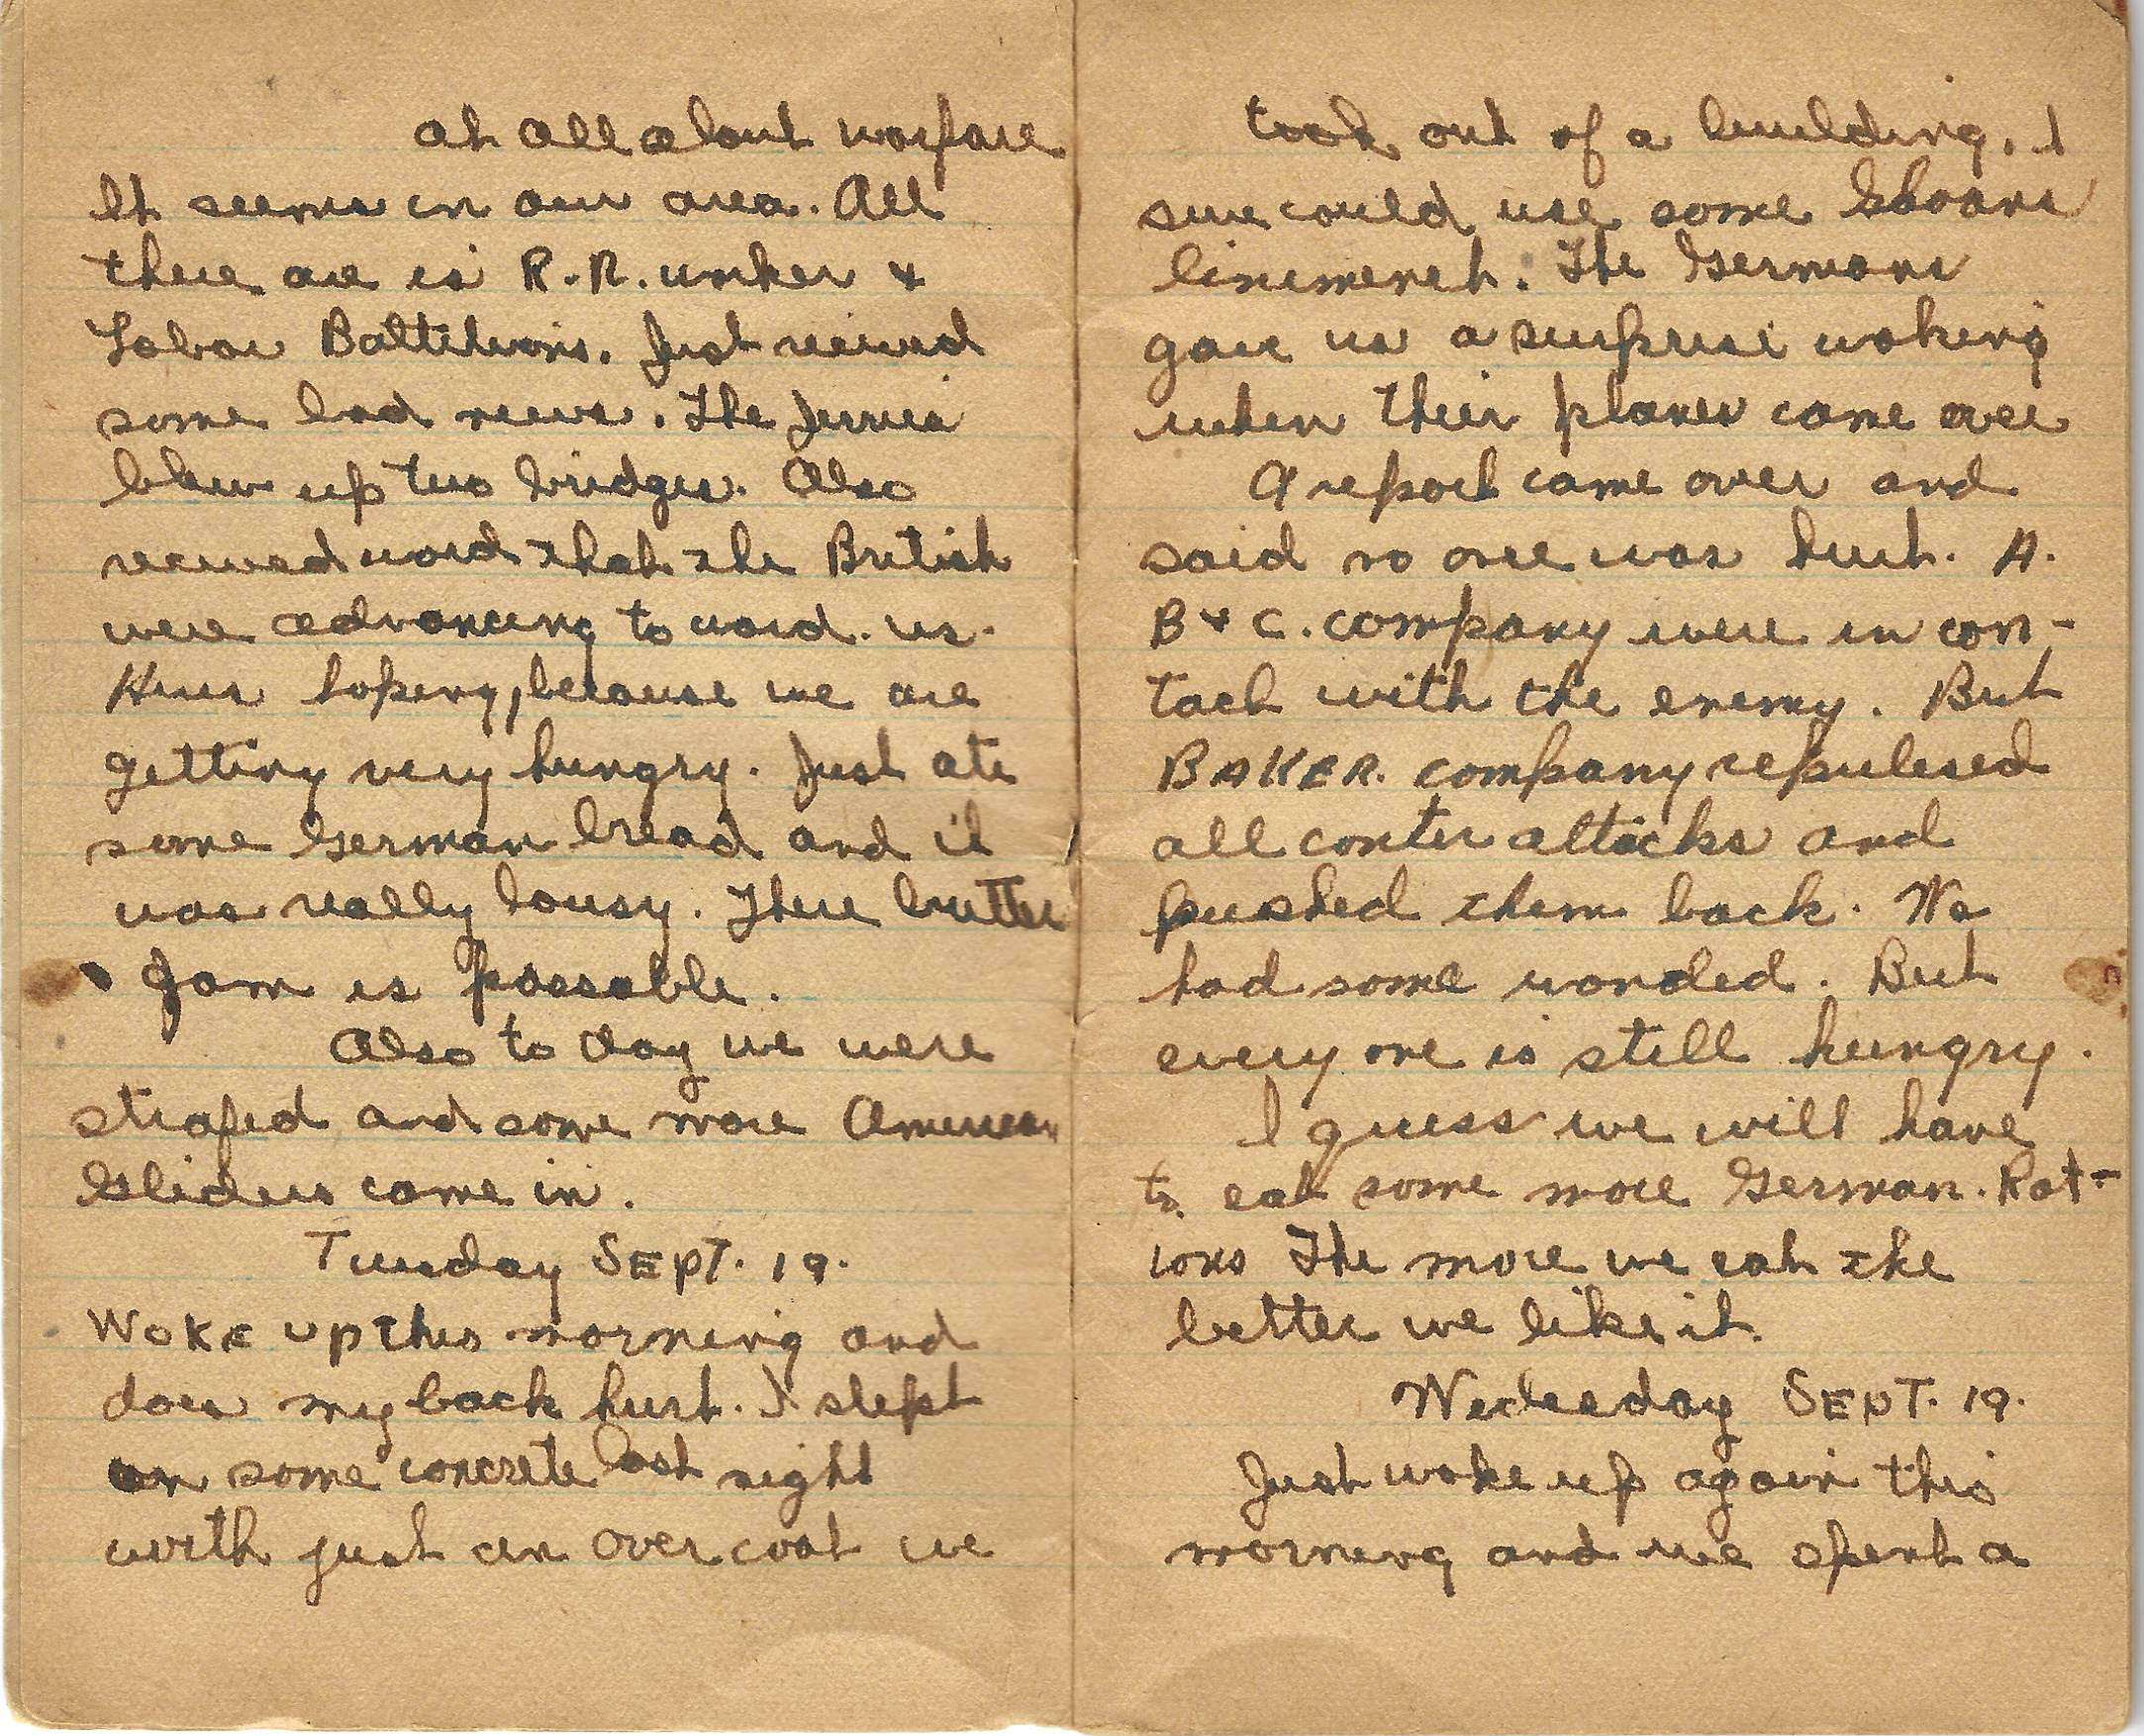 at all about warfare
It seems in our area. All
there are is R.R. unker &
Labor Battilions. Just reieved
some bad news. The Jerries
blew up two bridges. Also
reieved word that the British
were advancing to ward. us.
Heres hoping, because we are
getting very hungry. Just ate
some German bread and it
was really lousy. There butter
& Jam is passable.
Also to day we were
strafed and some more American
Gliders came in.
Tuesday SEPT. 19.
WOKE UP this morning and
does my back hurt. I slept
on some concrete last night
with just an over coat we
took out of a building. I
sure could use some Sloans
liniment. The Germans
gave us a surprise waking
when their planes came over
A report came over and
said no one was hurt. A.
B & C. company were in con-
tact with the enemy. But
BAKER. company repulsed
all conter attacks and
pushed them back. We
had some wonded. But
every one is still hungry.
I guess we will have
to eat some more German. Rat-
ions The more we eat the
better we like it.
Wedesday SEPT. 19.
Just woke up again this
morning and we spent a